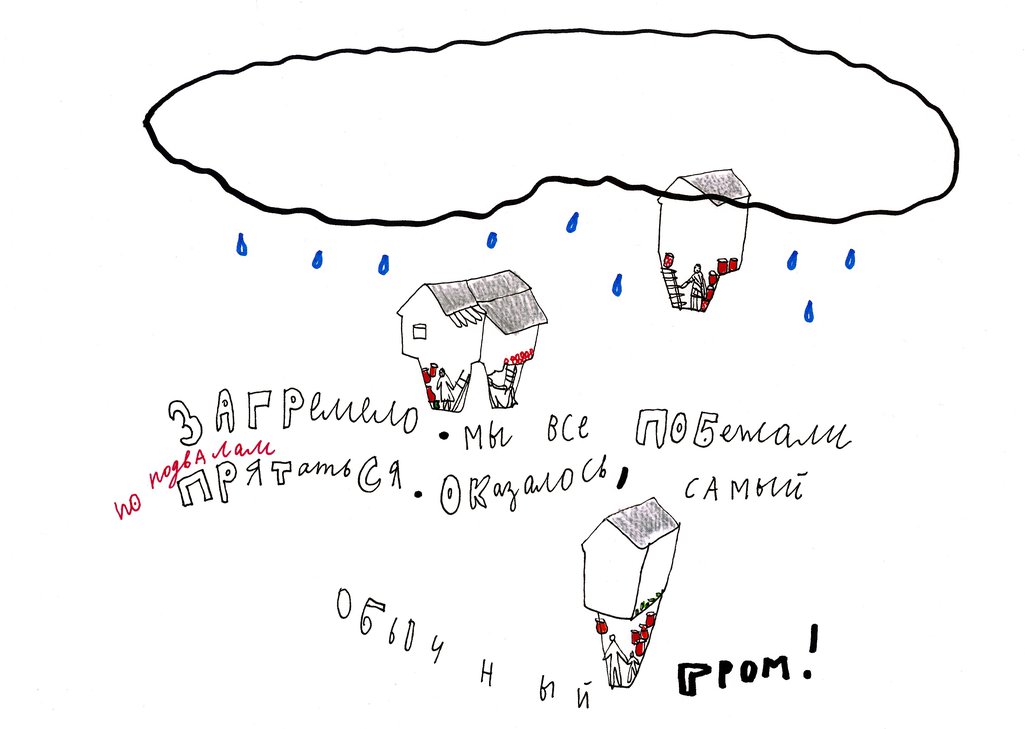 ЗАГРемело. мы все ПОБежали
по подвалам
ПРЯТатьСЯ. Оказалось, самый
обычный ГРОМ!